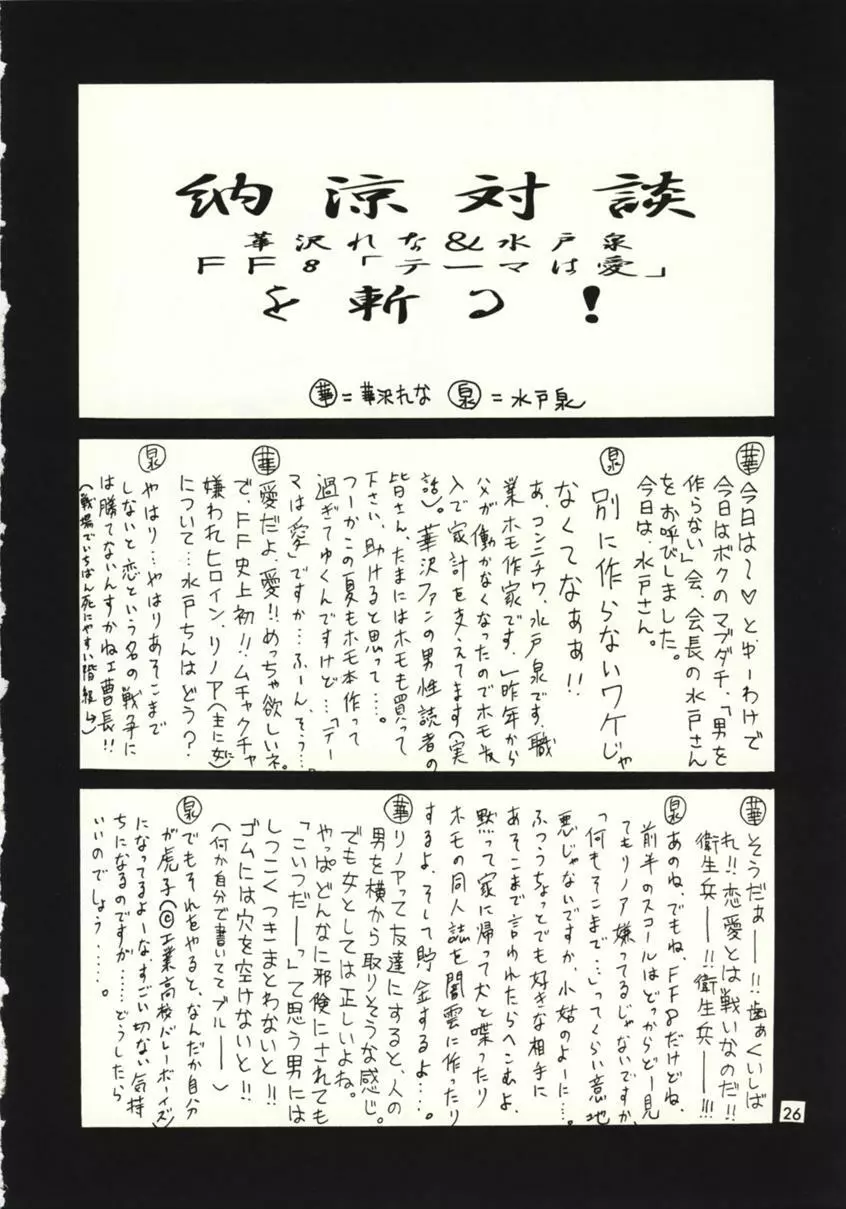 納涼対談
華沢れな&水戸泉
FF8「テーマは愛」
を斬る!
華=華沢れな 泉=水戸泉
華 今日は〜♡と、ゆーわけで
今日はボクのマブダチ、「男を
作らない」会、会長の水戸さん
をお呼びしました。
今日は、水戸さん。
泉 別に作らないワケじゃ
なくてなぁぁ!!
あ、コンニチワ、水戸泉です。職
業ホモ作家です。(昨年から
パパが働かなくなったのでホモ収
入で家計を支えてます(実
話)。華沢ファンの男性読者の
皆さん、たまにはホモも買って
下さい、助けると思って…。
つーかこの夏もホモ本作って
過ぎてゆくんですけど…「テー
マは愛」ですか…ふーん、そう…。
華 愛だよ、愛!!めっちゃ欲しいネ。
で、FF史上初!!ムチャクチャ
嫌われヒロイン、リノア(主に女に)
について…水戸ちんはどう?
泉 やはり…やはりあそこまで
しないと恋という名の戦争に
は勝てないんすかね工曹長!!
(戦場でいちばん死にやすい階級↑)
華 そうだぁー!!歯ぁくいしば
れ!!恋愛とは戦いなのだ!!
衛生兵ー!!衛生兵ー!!!
泉 あのね、でもね、FF8だけどね、
前半のスコールはどっからどー見
てもリノア嫌ってるじゃないですか、
「何もそこまで…」ってくらい意地
悪じゃないですか、小姑のよーに…。
ふつうちょっとでも好きな相手に
あそこまで言われたらへこむよ、
黙って家に帰って犬と喋ったり
ホモの同人誌を闇雲に作ったり
するよ、そして貯金するよ…。
華 リノアって友達にすると、人の
男を横から取りそうな感じ。
でも女としては正しいよね。
やっぱどんなに邪険にされても
「こいつだーっ」て思う男には
しつこくつきまとわないと!!
ゴムには穴を空けないと!!
(何か自分で書いててブルー)
泉 でもそれをやると、なんだか自分
が虎子(©工業高校バレーボーイズ)
になってるよーな、すごい切ない気持
ちになるのですが……どうしたら
いいのでしょう……。
26